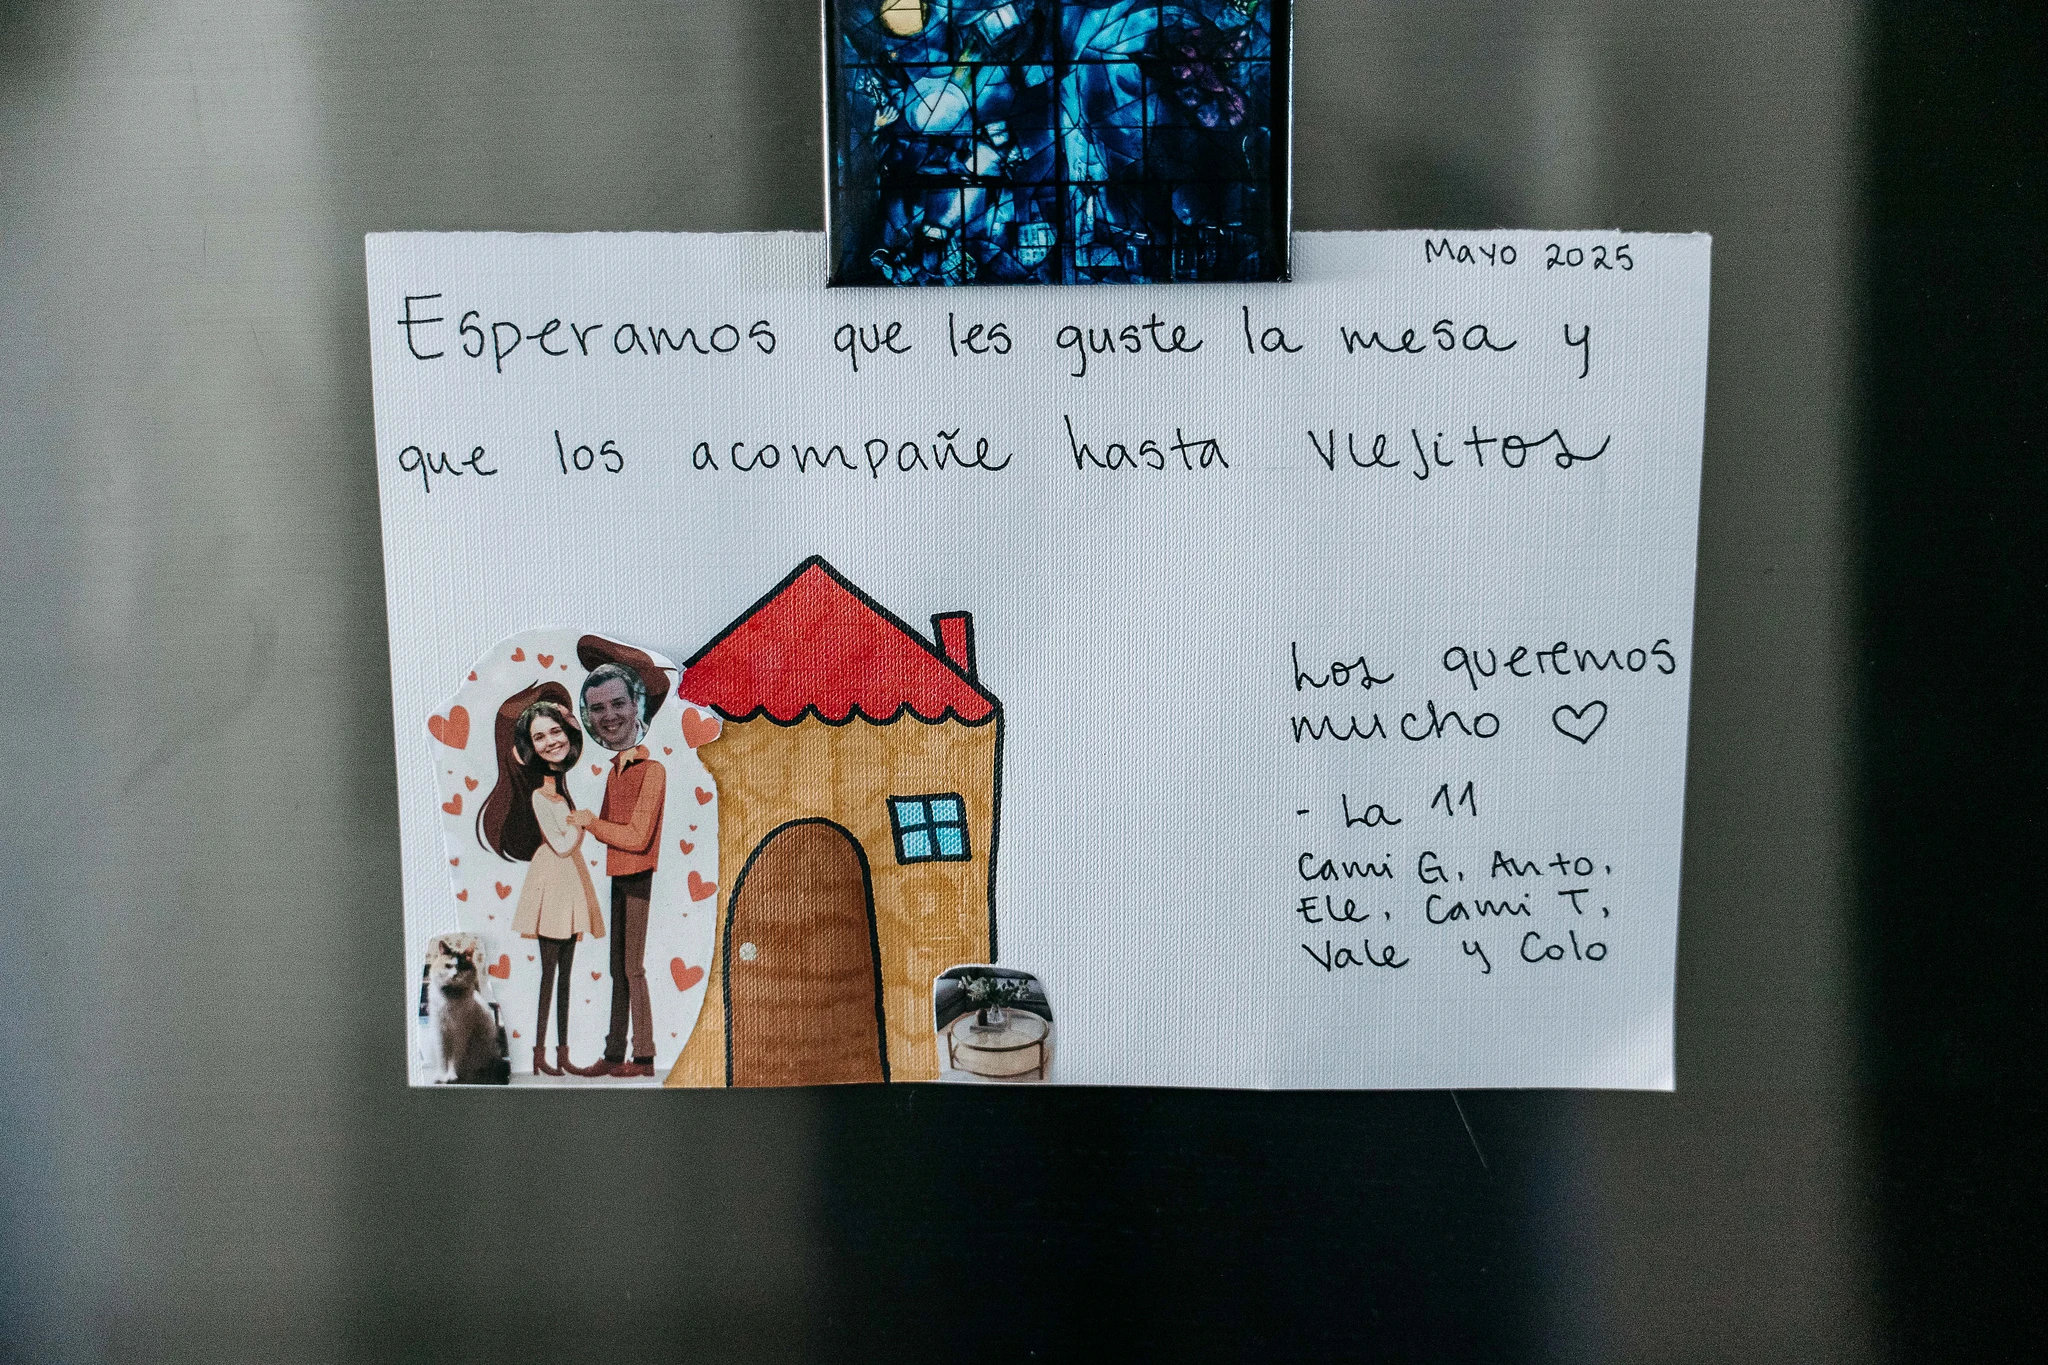 Mayo 2025
Esperamos que les guste la mesa y
que los acompañe hasta viejitos
Los queremos
mucho ♡
- La 11
Cami G, Anto,
Ele, Cami T,
Vale y Colo